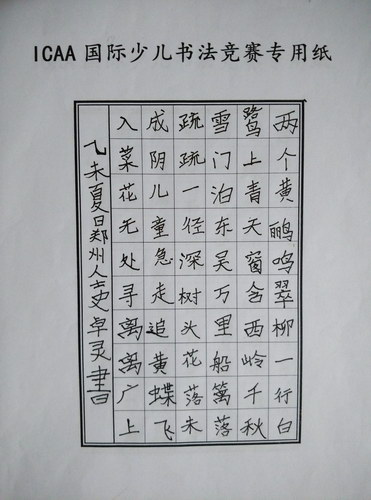 ICAA 国际少儿书法竞赛专用纸
两个黄鹂鸣翠柳一行白
鹭上青天窗含西岭千秋
雪门泊东吴万里船篱落
疏疏一径深树头花落未
成阴儿童急走追黄蝶飞
入菜花无处寻离离广上
乙未夏日郑州人吏卓灵書